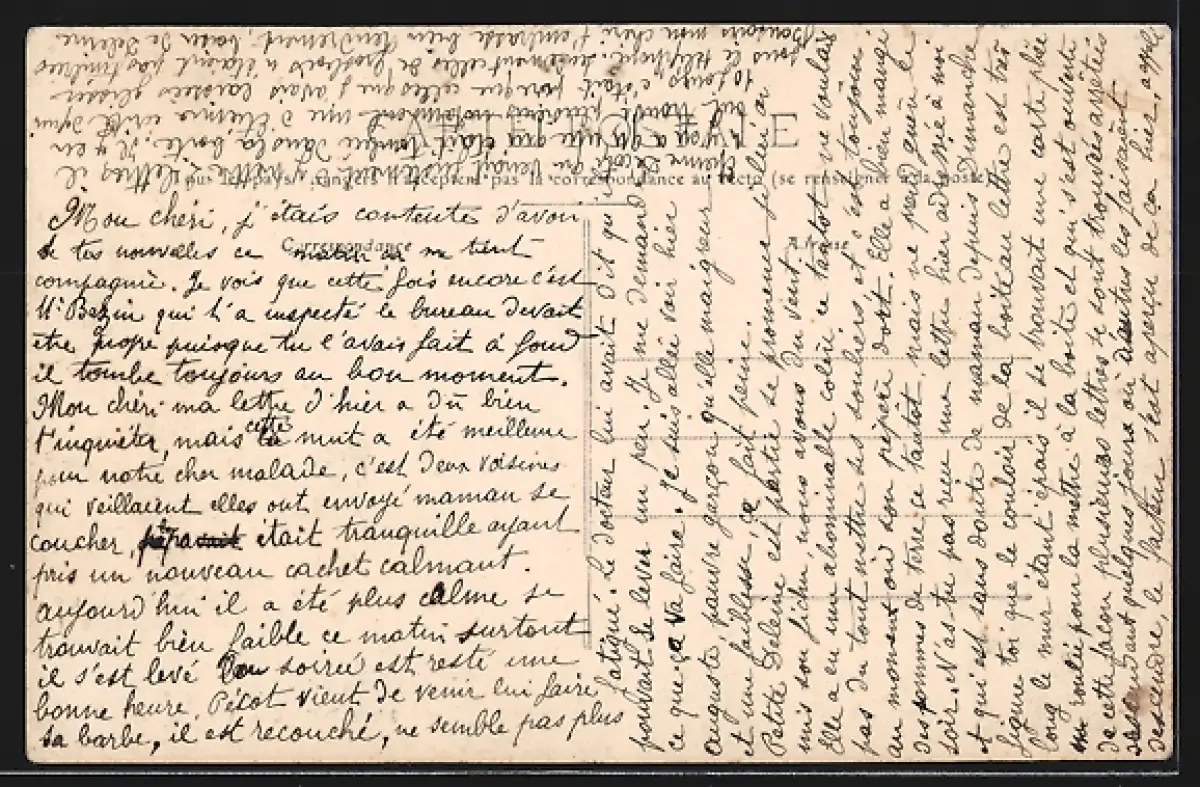 CARTE POSTALE
Tous les pays étrangers n'acceptent pas la correspondance au recto (se renseigner à la poste)
Correspondance
Adresse
Mon chéri, j'étais contente d'avoir
de tes nouvelles ce matin ça me tient
compagnie. Je vois que cette fois encore c'est
Mr Bezin qui t'a inspecté le bureau devait
être propre puisque tu l'avais fait à fond
il tombe toujours au bon moment.
Mon chéri ma lettre d'hier a dû bien
t'inquiéter, mais cette nuit a été meilleure
pour notre cher malade, c'est deux voisines
qui veillaient elles ont envoyé maman se
coucher, était tranquille ayant
pris un nouveau cachet calmant.
aujourd'hui il a été plus calme se
trouvait bien faible ce matin surtout
il s'est levé soirée est resté une
bonne heure. Pétot vient de venir lui faire
sa barbe, il est recouché, ne semble pas plus
fatigué. Le docteur lui avait dit qu'il
pouvait se lever un peu. Je me demande
ce que ça va faire. Je suis allée voir hier
auguste, pauvre garçon qu'elle maigreur
et une faiblesse, ça fait peine.
Petite Delerne est partie se promener j'ai bien
mis son fichu, nous avons du vent
Elle a eu une abominable colère ce tantôt ne voulait
pas du tout mettre ses souliers et c'est toujours
au moment où son pépère dort. Elle a bien mangé
des pommes de terre ce tantôt mais ne prend guère le
soir. N'as-tu pas reçu une lettre hier adressée à moi
et qui est sans doute de maman depuis Dimanche
figure toi que le couloir de la boîte au lettre est très
long le mur étant épais il se trouvait une carte pliée
roulée pour la mettre à la boîte et qui s'est ouverte
de cette façon plusieurs lettres se sont trouvées arrêtées
pendant quelques jours où d'autres les faisaient
descendre, le facteur s'est aperçu de ça hier, a appelé
Etienne de coin qui venait justement y mettre 2 lettres il
n'y en a qu'une qui était tombée dans la boîte. Il y en
eut trouvé plusieurs notamment une d'Etienne écrite depuis
10 jours c'était parce que celles que j'avais laissées glisser
sous le téléphone, seulement celles de n'étaient pas timbrées
Bonsoir mon chéri t'embrasse bien tendrement, baiser de Delerne